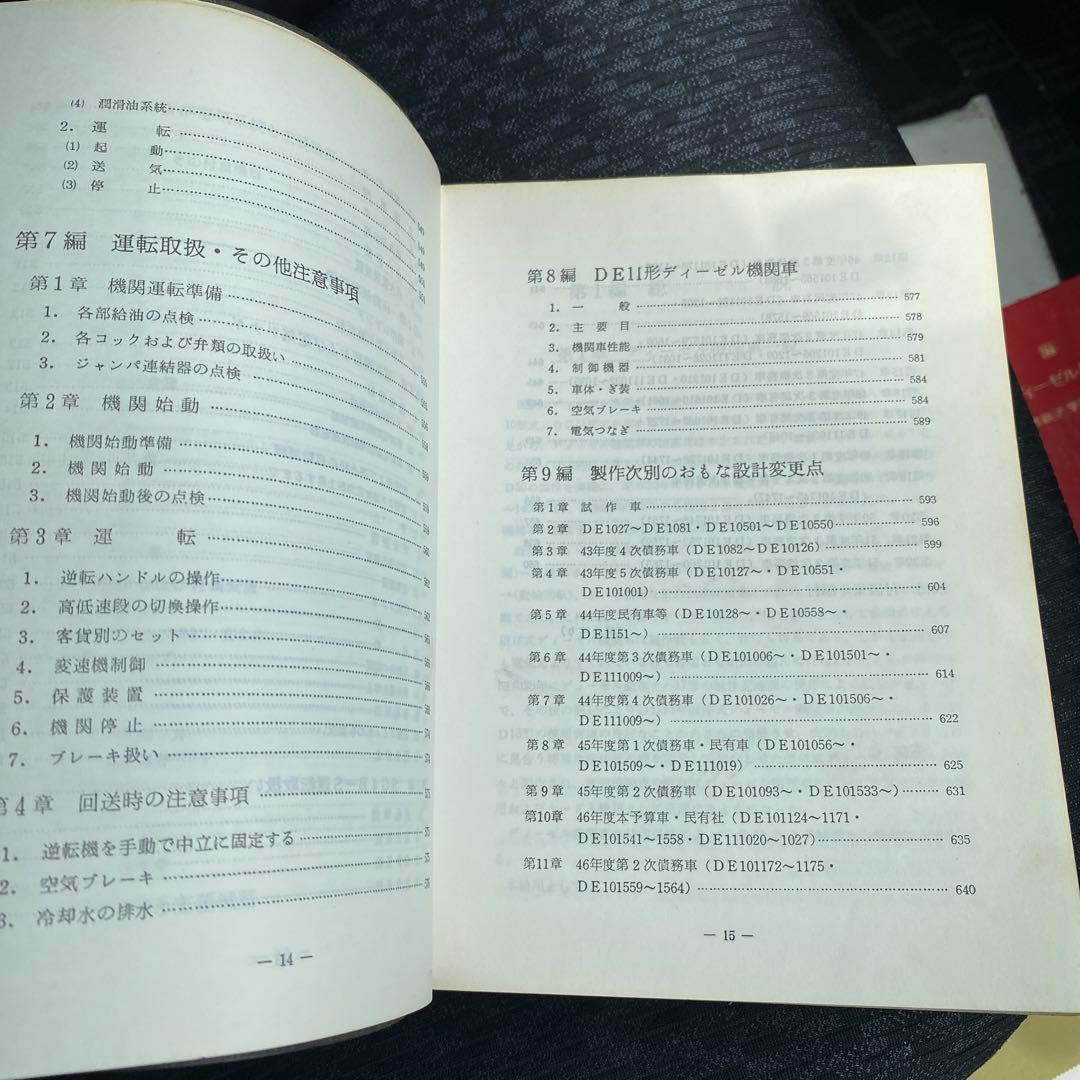 (4) 潤滑油系統
2. 運　転
(1) 起　動
(2) 送　気
(3) 停　止
第7編　運転取扱・その他注意事項
第1章　機関運転準備
1. 各部給油の点検
2. 各コックおよび弁類の取扱い
3. ジャンパ連結器の点検
第2章　機関始動
1. 機関始動準備
2. 機関始動
3. 機関始動後の点検
第3章　運　転
1. 逆転ハンドルの操作
2. 高低速段の切換操作
3. 客貨別のセット
4. 変速機制御
5. 保護装置
6. 機関停止
7. ブレーキ扱い
第4章　回送時の注意事項
1. 逆転機を手動で中立に固定する
2. 空気ブレーキ
3. 冷却水の排水
— 14 —
第8編　DE11形ディーゼル機関車
1. 一　般 577
2. 主要目 578
3. 機関車性能 579
4. 制御機器 581
5. 車体・ぎ装 584
6. 空気ブレーキ 584
7. 電気つなぎ 589
第9編　製作次別のおもな設計変更点
第1章　試作車 593
第2章　DE1027～DE1081・DE10501～DE10550 596
第3章　43年度4次債務車（DE1082～DE10126） 599
第4章　43年度5次債務車（DE10127～・DE10551・
DE101001） 604
第5章　44年度民有車等（DE10128～・DE10558～・
DE1151～） 607
第6章　44年度第3次債務車（DE101006～・DE101501～・
DE111009～） 614
第7章　44年度第4次債務車（DE101026～・DE101506～・
DE111009～） 622
第8章　45年度第1次債務車・民有車（DE101056～・
DE101509～・DE111019） 625
第9章　45年度第2次債務車（DE101093～・DE101533～） 631
第10章　46年度本予算車・民有社（DE101124～1171・
DE101541～1558・DE111020～1027） 635
第11章　46年度第2次債務車（DE101172～1175・
DE101559～1564） 640
— 15 —